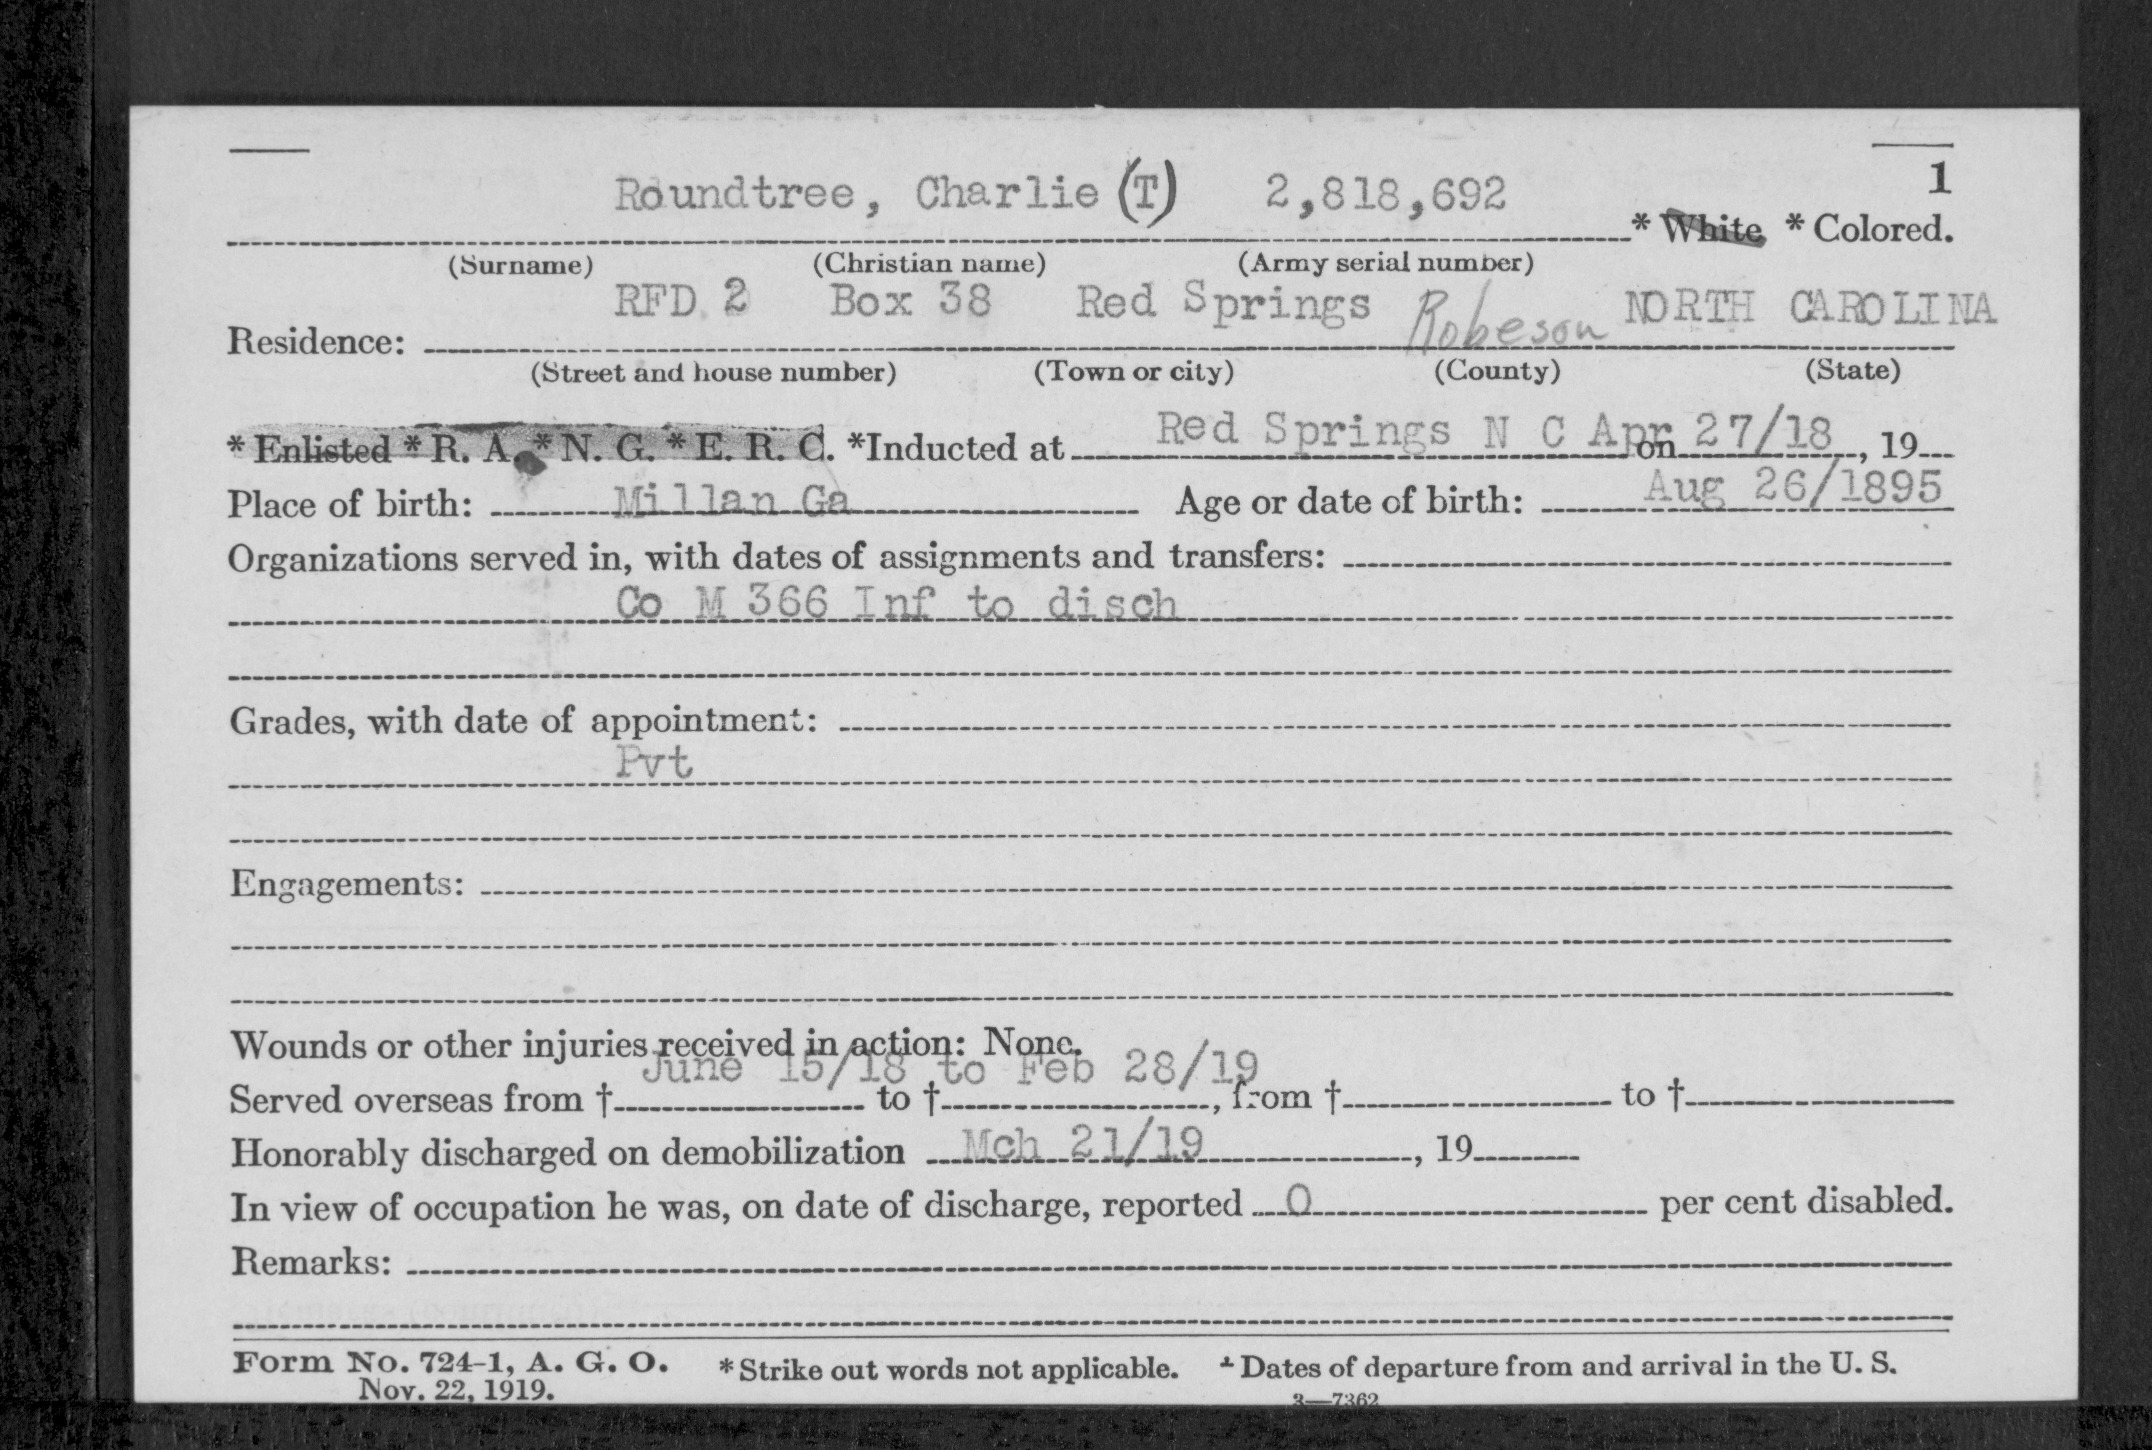 1
Roundtree, Charlie (T) 2,818,692 * White * Colored.
(Surname) (Christian name) (Army serial number)
RFD 2 Box 38 Red Springs Robeson NORTH CAROLINA
Residence:
(Street and house number) (Town or city) (County) (State)
* Enlisted * R. A. * N. G. * E. R. C. *Inducted at Red Springs N C Apr on 27/18, 19
Place of birth: Millan Ga Age or date of birth: Aug 26/1895
Organizations served in, with dates of assignments and transfers:
Co M 366 Inf to disch
Grades, with date of appointment:
Pvt
Engagements:
Wounds or other injuries received in action: None.
June 15/18 to Feb 28/19
Served overseas from † to †, from † to †
Honorably discharged on demobilization Mch 21/19, 19
In view of occupation he was, on date of discharge, reported 0 per cent disabled.
Remarks:
Form No. 724-1, A. G. O. * Strike out words not applicable. † Dates of departure from and arrival in the U. S.
Nov. 22, 1919. 3—7362